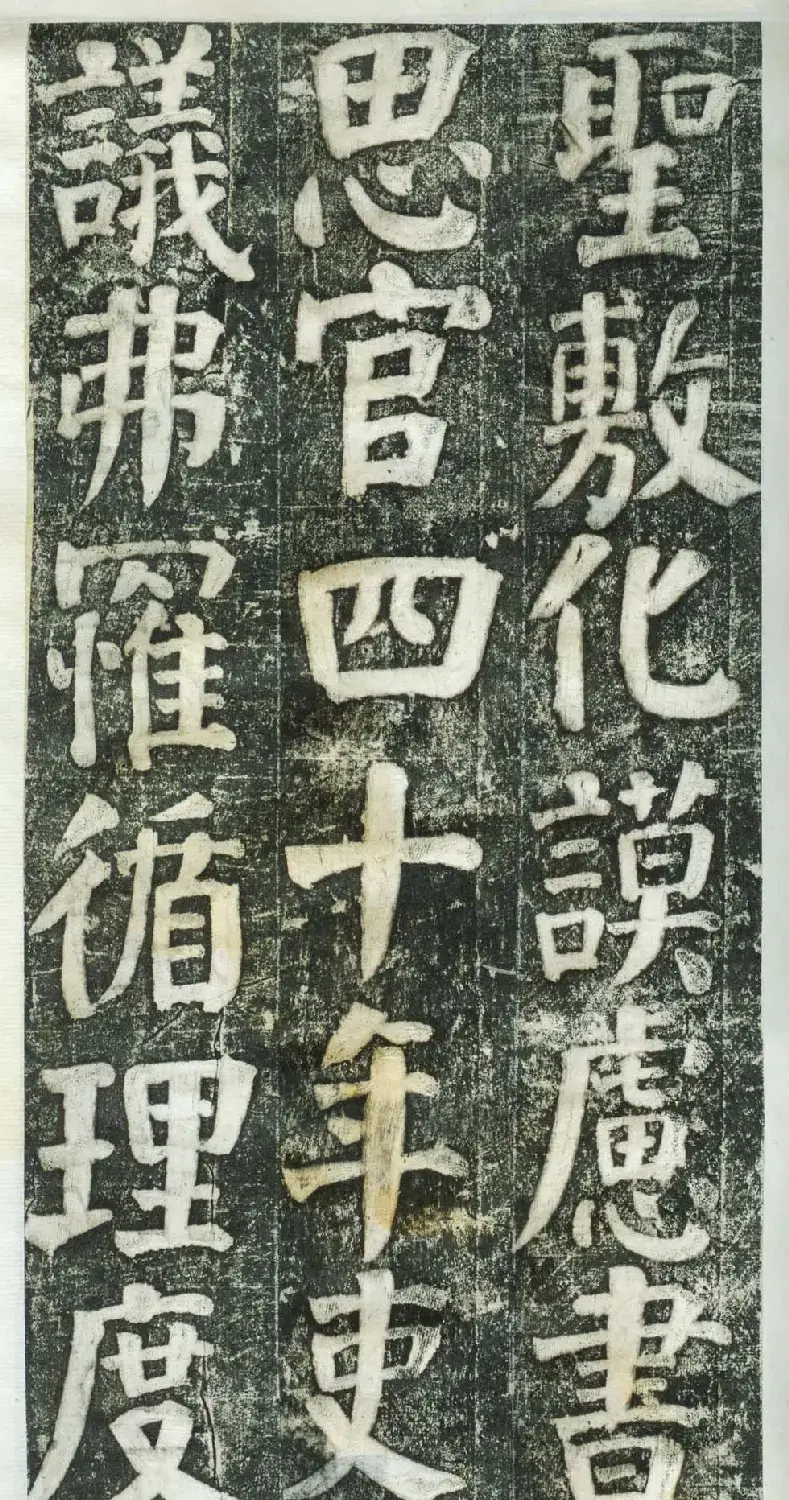 聖敷化謨慮書
思官四十年吏
議弗罹循理度